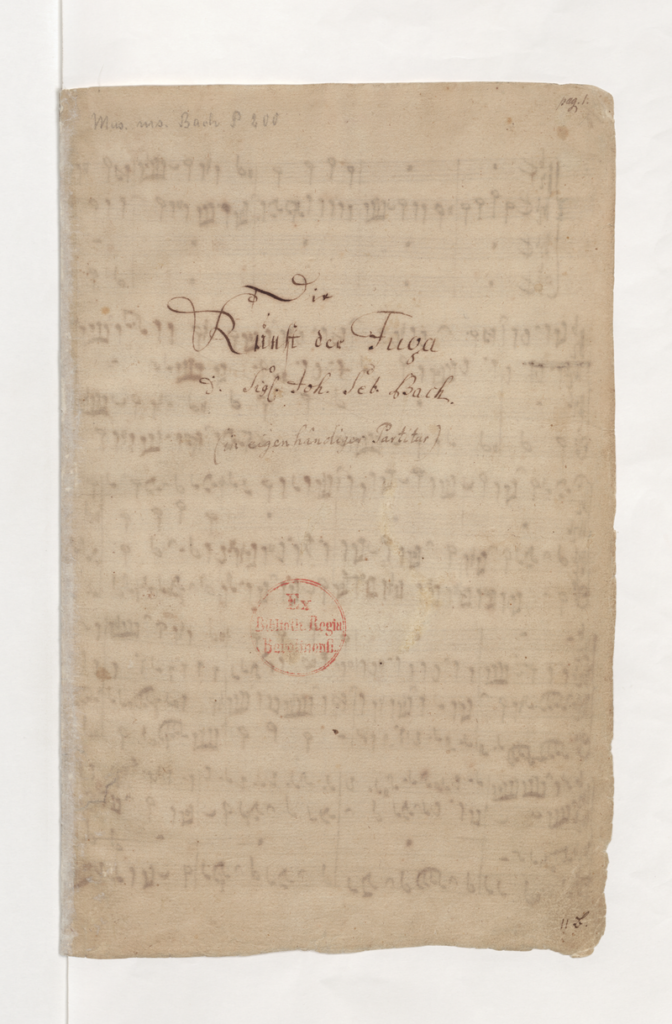 pag. 1.
Mus. ms. Bach P 200
Die
Kunst der Fuga
d. Sigl. Joh. Seb. Bach.
(in eigenhändiger Partitur)
Ex
Biblioth. Regia
Berolinensi.